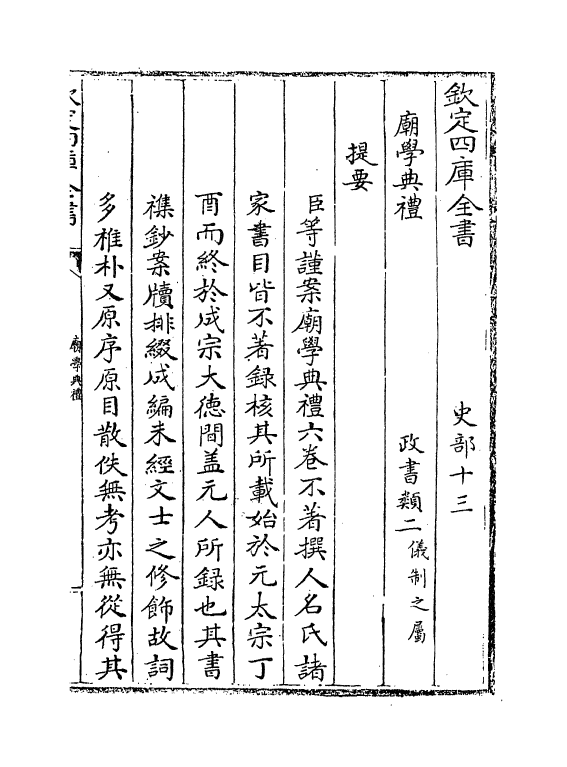 欽定四庫全書　史部十三
廟學典禮　政書類二儀制之屬
提要
臣等謹案廟學典禮六卷不著撰人名氏諸
家書目皆不著録核其所載始於元太宗丁
酉而終於成宗大德間盖元人所録也其書
襍鈔案牘排綴成編未經文士之修飾故詞
多椎朴又原序原目散佚無考亦無從得其
欽定四庫全書
廟學典禮
一